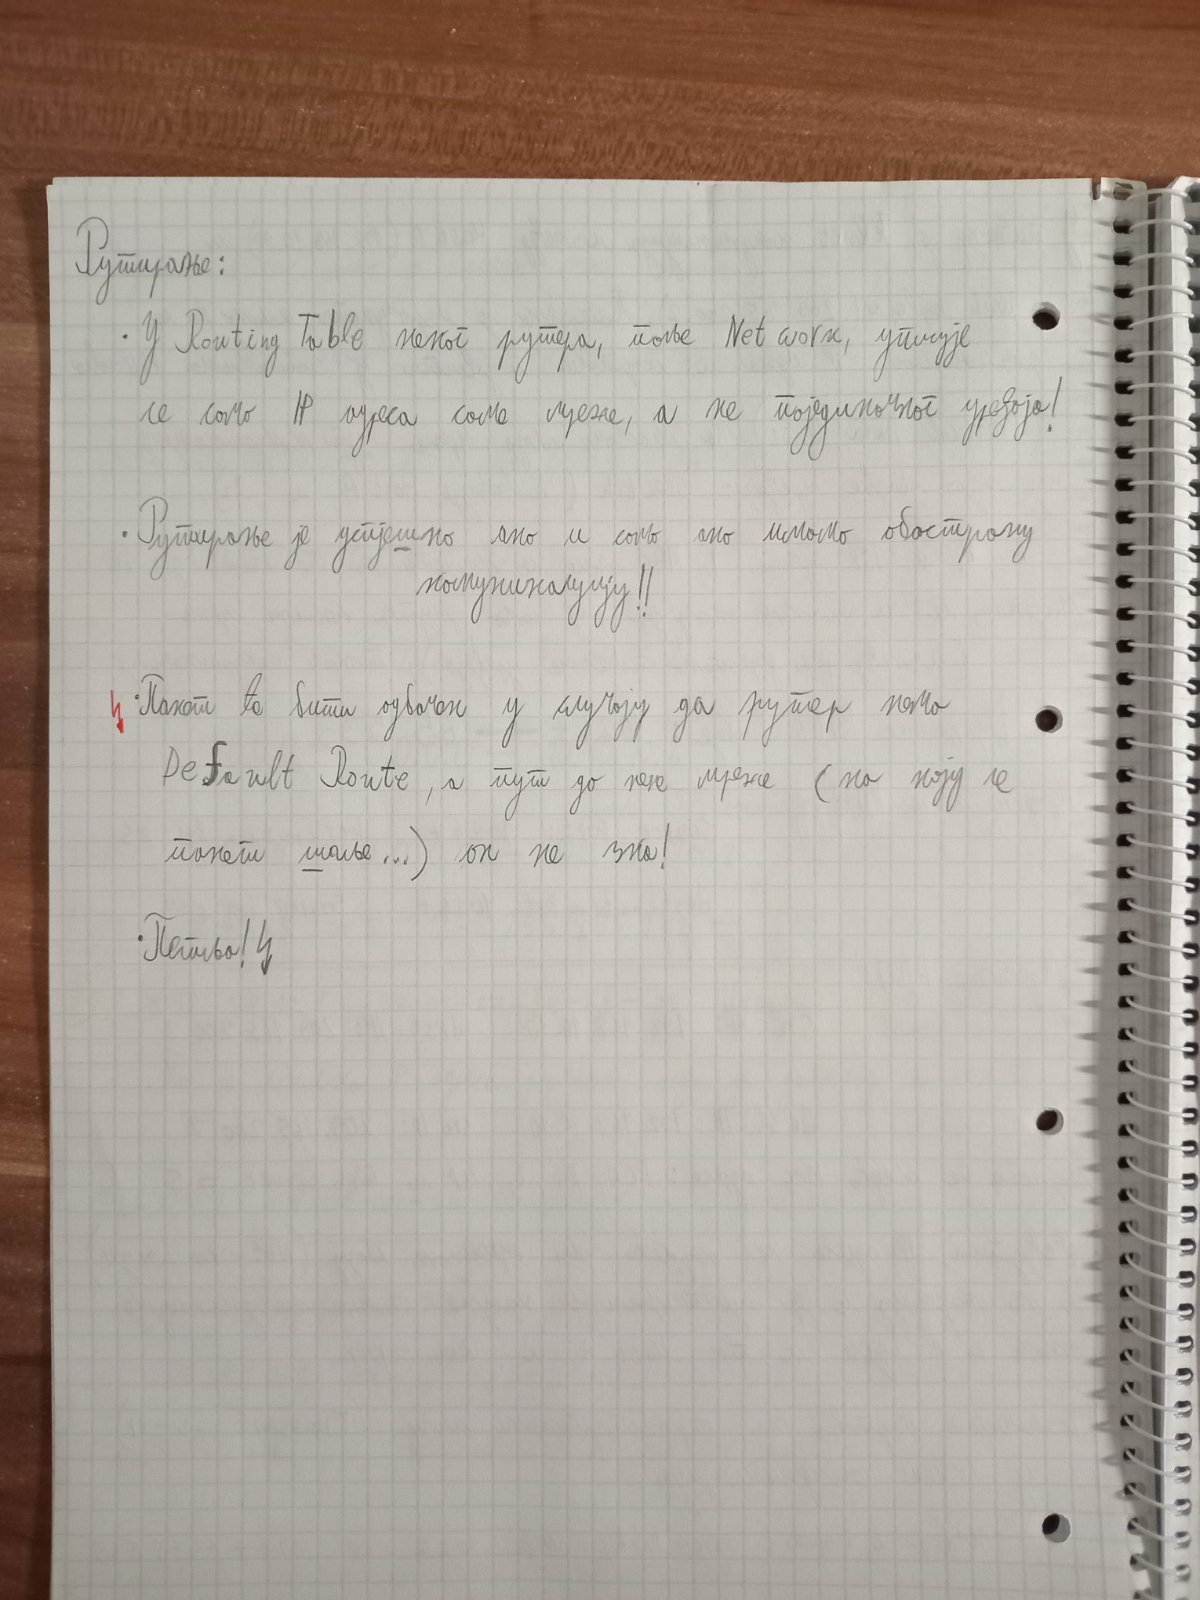 Рутирање:
· У Routing Table неког рутера, поље Network, уписује
се само IP адреса саме мреже, а не појединачног уређаја!
· Рутирање је успјешно ако и само ако имамо обострану
комуникацију!!
· Пакет ће бити одбачен у случају да рутер нема
Default Route, а пут до неке мреже (на коју се
пакет шаље...) он не зна!
· Петља!